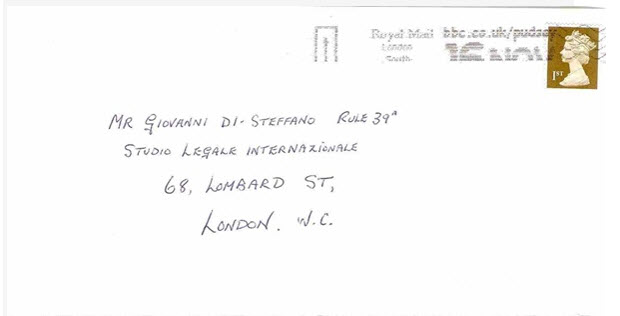 Royal Mail bbc.co.uk/pudsey
London
South
1ST
MR GIOVANNI DI-STEFFANO RULE 39A
STUDIO LEGALE INTERNAZIONALE
68, LOMBARD ST,
LONDON. W.C.